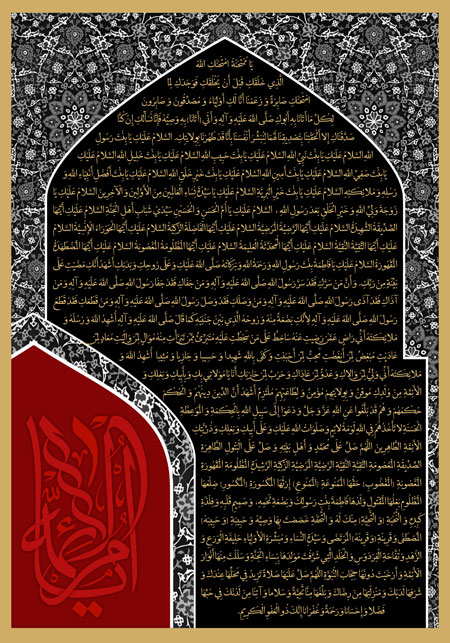 يَا مُمْتَحَنَةُ امْتَحَنَكِ اللَّهُ
الَّذِي خَلَقَكِ قَبْلَ أَنْ يَخْلُقَكِ فَوَجَدَكِ لِمَا
امْتَحَنَكِ صَابِرَةً وَ زَعَمْنَا أَنَّا لَكِ أَوْلِيَاءُ وَ مُصَدِّقُونَ وَ صَابِرُونَ
لِكُلِّ مَا أَتَانَا بِهِ أَبُوكِ صَلَّى اللَّهُ عَلَيْهِ وَ آلِهِ وَ أَتَى (أَتَانَا) بِهِ وَصِيُّهُ فَإِنَّا نَسْأَلُكِ إِنْ كُنَّا
صَدَّقْنَاكِ إِلا أَلْحَقْتِنَا بِتَصْدِيقِنَا لَهُمَا لِنُبَشِّرَ أَنْفُسَنَا بِأَنَّا قَدْ طَهُرْنَا بِوِلايَتِكِ. السَّلامُ عَلَيْكِ يَا بِنْتَ رَسُولِ
اللَّهِ السَّلامُ عَلَيْكِ يَا بِنْتَ نَبِيِّ اللَّهِ السَّلامُ عَلَيْكِ يَا بِنْتَ حَبِيبِ اللَّهِ السَّلامُ عَلَيْكِ يَا بِنْتَ خَلِيلِ اللَّهِ السَّلامُ عَلَيْكِ
يَا بِنْتَ صَفِيِّ اللَّهِ السَّلامُ عَلَيْكِ يَا بِنْتَ أَمِينِ اللَّهِ السَّلامُ عَلَيْكِ يَا بِنْتَ خَيْرِ خَلْقِ اللَّهِ السَّلامُ عَلَيْكِ يَا بِنْتَ أَفْضَلِ أَنْبِيَاءِ اللَّهِ وَ
رُسُلِهِ وَ مَلائِكَتِهِ السَّلامُ عَلَيْكِ يَا بِنْتَ خَيْرِ الْبَرِيَّةِ السَّلامُ عَلَيْكِ يَا سَيِّدَةَ نِسَاءِ الْعَالَمِينَ مِنَ الْأَوَّلِينَ وَ الْآخِرِينَ السَّلامُ عَلَيْكِ يَا
زَوْجَةَ وَلِيِّ اللَّهِ وَ خَيْرِ الْخَلْقِ بَعْدَ رَسُولِ اللَّهِ . السَّلامُ عَلَيْكِ يَا أُمَّ الْحَسَنِ وَ الْحُسَيْنِ سَيِّدَيْ شَبَابِ أَهْلِ الْجَنَّةِ السَّلامُ عَلَيْكِ أَيَّتُهَا
الصِّدِّيقَةُ الشَّهِيدَةُ السَّلامُ عَلَيْكِ أَيَّتُهَا الرَّضِيَّةُ الْمَرْضِيَّةُ السَّلامُ عَلَيْكِ أَيَّتُهَا الْفَاضِلَةُ الزَّكِيَّةُ السَّلامُ عَلَيْكِ أَيَّتُهَا الْحَوْرَاءُ الْإِنْسِيَّةُ السَّلامُ
عَلَيْكِ أَيَّتُهَا التَّقِيَّةُ النَّقِيَّةُ السَّلامُ عَلَيْكِ أَيَّتُهَا الْمُحَدَّثَةُ الْعَلِيمَةُ السَّلامُ عَلَيْكِ أَيَّتُهَا الْمَظْلُومَةُ الْمَغْصُوبَةُ السَّلامُ عَلَيْكِ أَيَّتُهَا الْمُضْطَهَدَةُ
الْمَقْهُورَةُ السَّلامُ عَلَيْكِ يَا فَاطِمَةُ بِنْتَ رَسُولِ اللَّهِ وَ رَحْمَةُ اللَّهِ وَ بَرَكَاتُهُ صَلَّى اللَّهُ عَلَيْكِ وَ عَلَى رُوحِكِ وَ بَدَنِكِ أَشْهَدُ أَنَّكِ مَضَيْتِ عَلَى
بَيِّنَةٍ مِنْ رَبِّكِ. وَ أَنَّ مَنْ سَرَّكِ فَقَدْ سَرَّ رَسُولَ اللَّهِ صَلَّى اللَّهُ عَلَيْهِ وَ آلِهِ وَ مَنْ جَفَاكِ فَقَدْ جَفَا رَسُولَ اللَّهِ صَلَّى اللَّهُ عَلَيْهِ وَ آلِهِ وَ مَنْ
آذَاكِ فَقَدْ آذَى رَسُولَ اللَّهِ صَلَّى اللَّهُ عَلَيْهِ وَ آلِهِ وَ مَنْ وَصَلَكِ فَقَدْ وَصَلَ رَسُولَ اللَّهِ صَلَّى اللَّهُ عَلَيْهِ وَ آلِهِ وَ مَنْ قَطَعَكِ فَقَدْ قَطَعَ
رَسُولَ اللَّهِ صَلَّى اللَّهُ عَلَيْهِ وَ آلِهِ لِأَنَّكِ بَضْعَةٌ مِنْهُ وَ رُوحُهُ الَّذِي بَيْنَ جَنْبَيْهِ كَمَا قَالَ صَلَّى اللَّهُ عَلَيْهِ وَ آلِهِ أُشْهِدُ اللَّهَ وَ رُسُلَهُ وَ
مَلائِكَتَهُ أَنِّي رَاضٍ عَمَّنْ رَضِيتِ عَنْهُ سَاخِطٌ عَلَى مَنْ سَخِطْتِ عَلَيْهِ مُتَبَرِّئٌ مِمَّنْ تَبَرَّأْتِ مِنْهُ مُوَالٍ لِمَنْ وَالَيْتِ مُعَادٍ لِمَنْ
عَادَيْتِ مُبْغِضٌ لِمَنْ أَبْغَضْتِ مُحِبٌّ لِمَنْ أَحْبَبْتِ وَ كَفَى بِاللَّهِ شَهِيدا وَ حَسِيبا وَ جَازِيا وَ مُثِيبا
الْأَئِمَّةِ مِنْ وُلْدِكِ مُوقِنٌ وَ بِوِلايَتِهِمْ مُؤْمِنٌ وَ لِطَاعَتِهِمْ مُلْتَزِمٌ أَشْهَدُ أَنَّ الدِّينَ دِينُهُمْ وَ الْحُكْمَ
حُكْمُهُمْ وَ هُمْ قَدْ بَلَّغُوا عَنِ اللَّهِ عَزَّ وَ جَلَّ وَ دَعَوْا إِلَى سَبِيلِ اللَّهِ بِالْحِكْمَةِ وَ الْمَوْعِظَةِ
الْحَسَنَةِ لا تَأْخُذُهُمْ فِي اللَّهِ لَوْمَةُ لائِمٍ وَ صَلَوَاتُ اللَّهِ عَلَيْكِ وَ عَلَى أَبِيكِ وَ بَعْلِكِ وَ ذُرِّيَّتِكِ
الْأَئِمَّةِ الطَّاهِرِينَ اللَّهُمَّ صَلِّ عَلَى مُحَمَّدٍ وَ أَهْلِ بَيْتِهِ وَ صَلِّ عَلَى الْبَتُولِ الطَّاهِرَةِ
الصِّدِّيقَةِ الْمَعْصُومَةِ التَّقِيَّةِ النَّقِيَّةِ الرَّضِيَّةِ الْمَرْضِيَّةِ الزَّكِيَّةِ الرَّشِيدَةِ الْمَظْلُومَةِ الْمَقْهُورَةِ
الْمَغْصُوبَةِ (الْمَغْصُوبِ) حَقُّهَا الْمَمْنُوعَةِ (الْمَمْنُوعِ) إِرْثُهَا الْمَكْسُورَةِ (الْمَكْسُورِ) ضِلْعُهَا
الْمَظْلُومِ بَعْلُهَا الْمَقْتُولِ وَلَدُهَا فَاطِمَةَ بِنْتِ رَسُولِكَ وَ بَضْعَةِ لَحْمِهِ وَ صَمِيمِ قَلْبِهِ وَ فِلْذَةِ
كَبِدِهِ وَ النُّخْبَةِ (وَ التَّحِيَّةِ) مِنْكَ لَهُ وَ التُّحْفَةِ خَصَصْتَ بِهَا وَصِيَّهُ وَ حَبِيبَهُ (وَ حَبِيبَةِ)
الْمُصْطَفَى وَ قَرِينَهُ (وَ قَرِينَةِ) الْمُرْتَضَى وَ سَيِّدَةِ النِّسَاءِ وَ مُبَشِّرَةِ الْأَوْلِيَاءِ حَلِيفَةِ الْوَرَعِ وَ
الزُّهْدِ وَ تُفَّاحَةِ الْفِرْدَوْسِ وَ الْخُلْدِ الَّتِي شَرَّفْتَ مَوْلِدَهَا بِنِسَاءِ الْجَنَّةِ وَ سَلَلْتَ مِنْهَا أَنْوَارَ
الْأَئِمَّةِ وَ أَرْخَيْتَ دُونَهَا حِجَابَ النُّبُوَّةِ اللَّهُمَّ صَلِّ عَلَيْهَا صَلاةً تَزِيدُ فِي مَحَلِّهَا عِنْدَكَ وَ
شَرَفِهَا لَدَيْكَ وَ مَنْزِلَتِهَا مِنْ رِضَاكَ وَ بَلِّغْهَا مِنَّا تَحِيَّةً وَ سَلاما وَ آتِنَا مِنْ لَدُنْكَ فِي حُبِّهَا
فَضْلا وَ إِحْسَانا وَ رَحْمَةً وَ غُفْرَانا إِنَّكَ ذُو الْعَفْوِ الْكَرِيمِ.